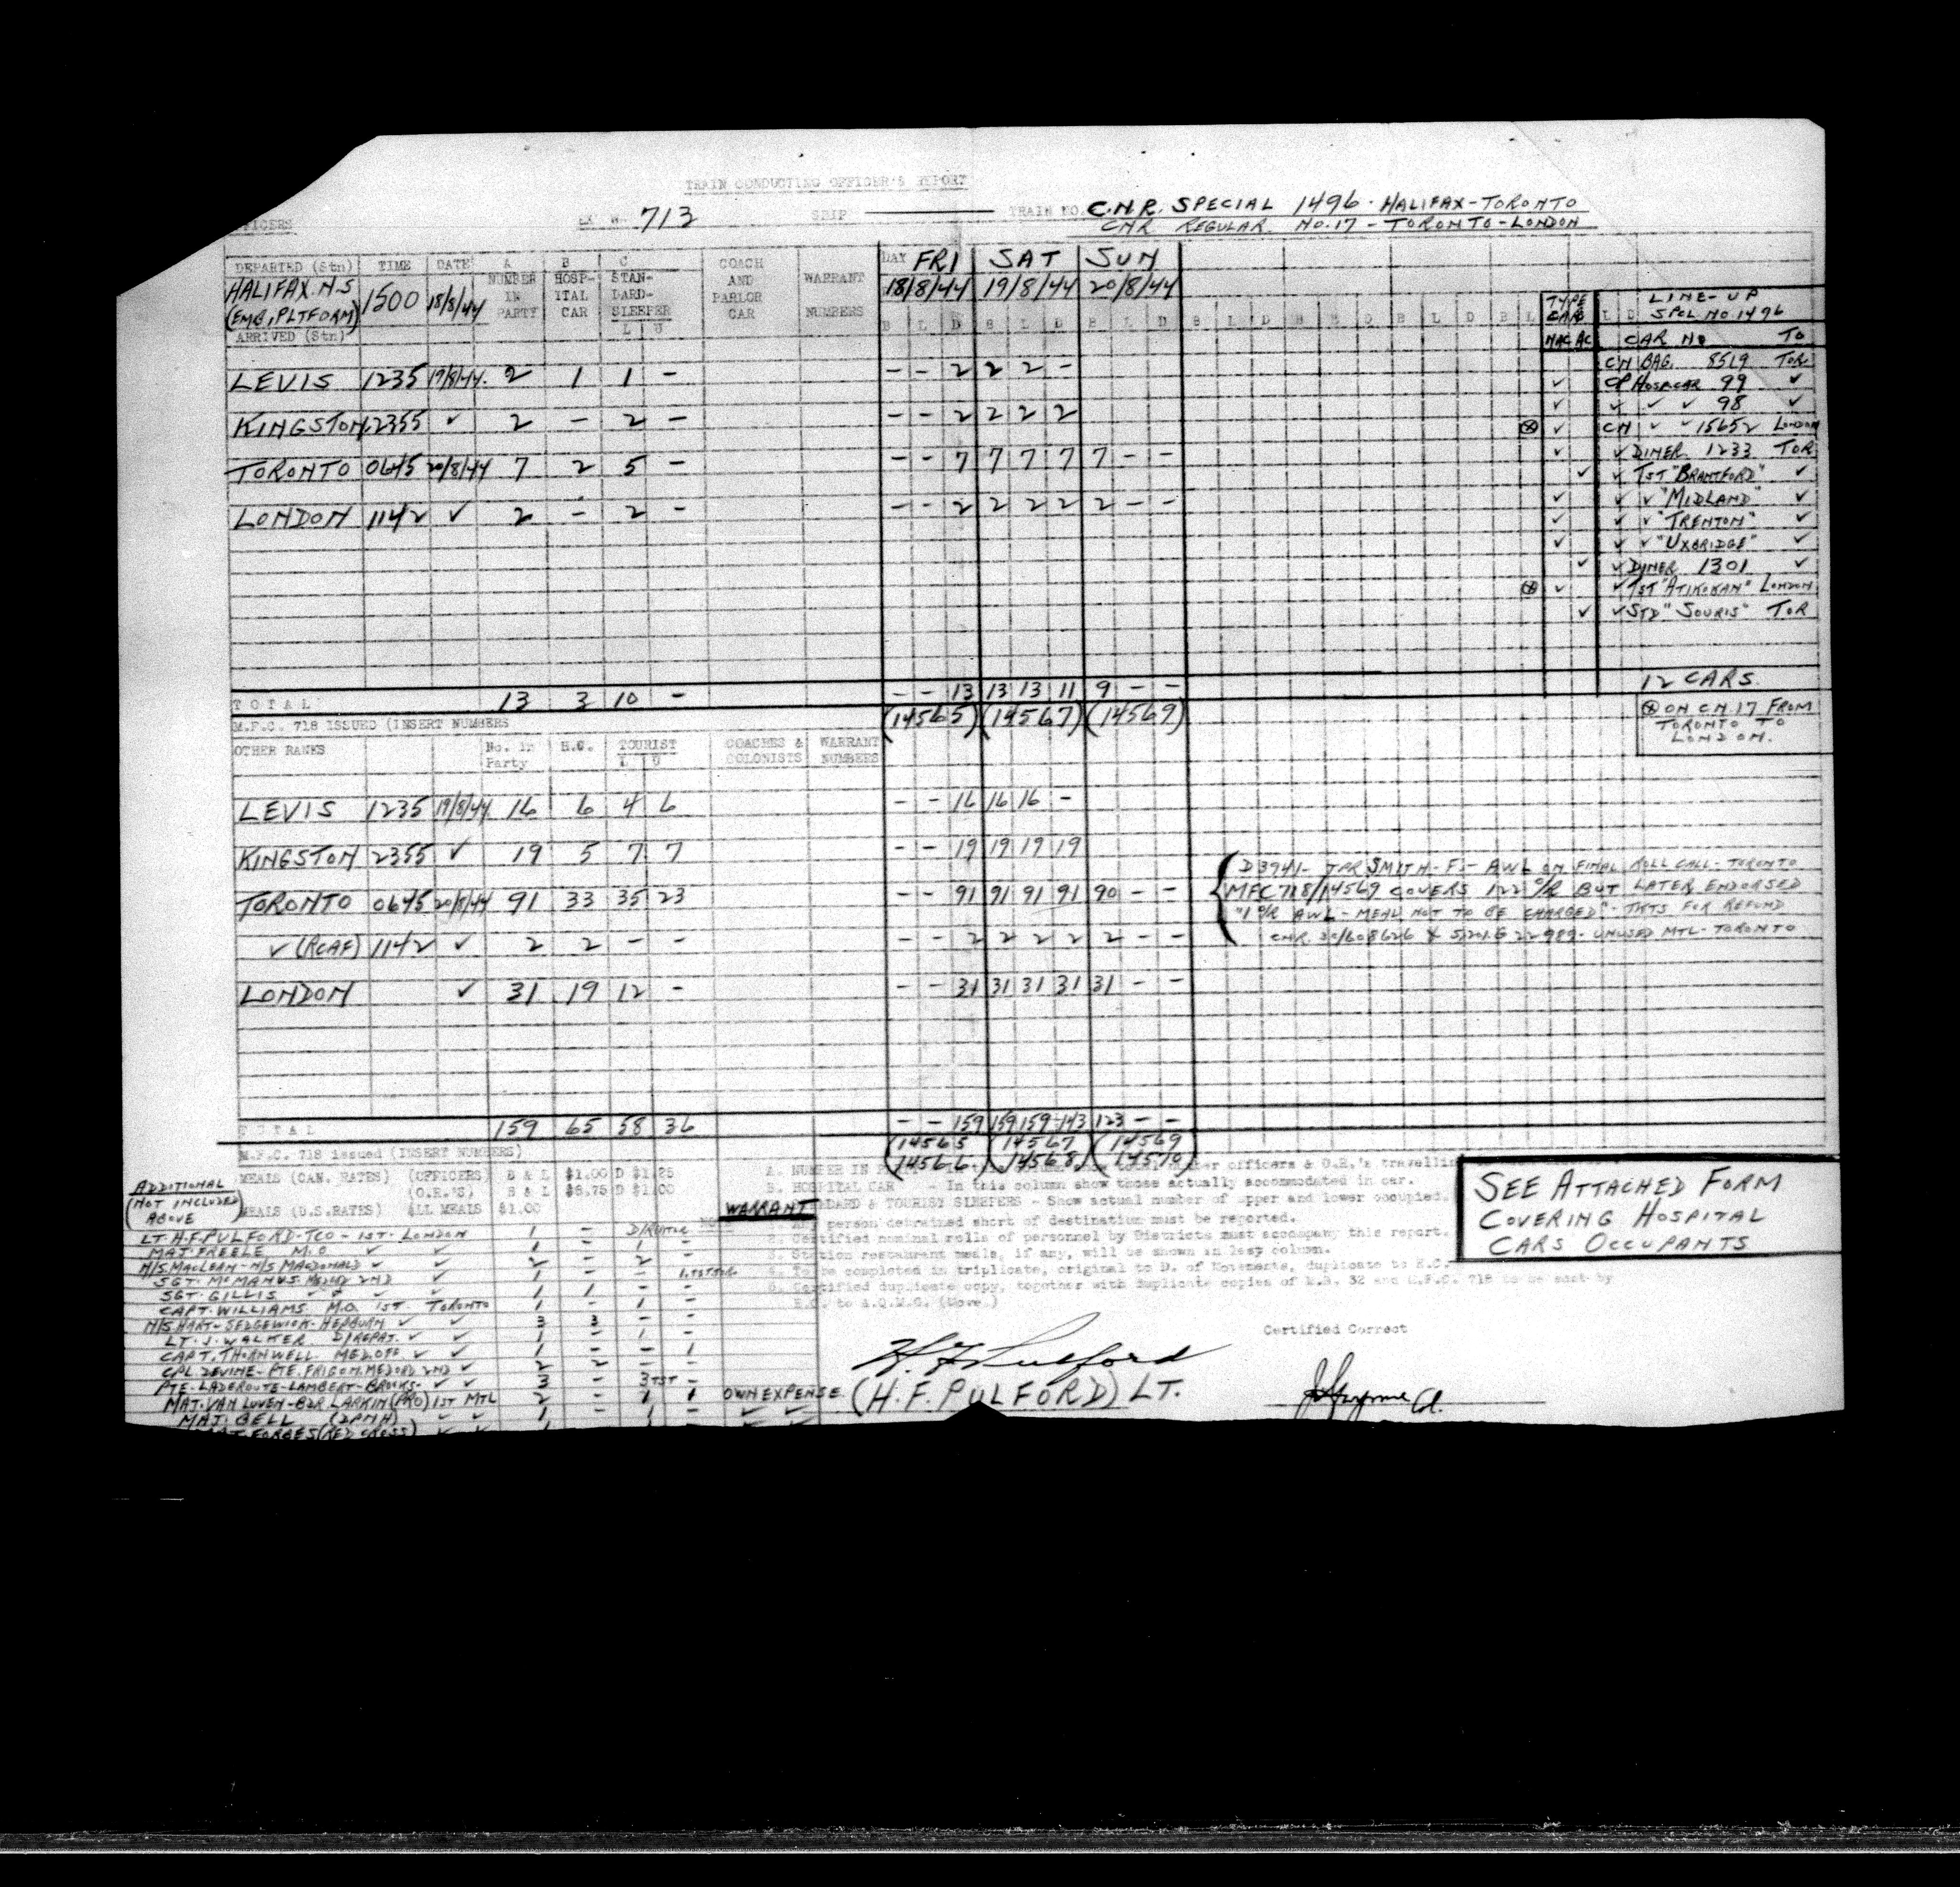 TRAIN CONDUCTING OFFICER'S REPORT
713 SHIP TRAIN NO. C.N.R. SPECIAL 1496 - HALIFAX-TORONTO
CNR REGULAR NO. 17 - TORONTO-LONDON
DEPARTED (Stn) TIME DATE A NUMBER IN PARTY B HOSPITAL CAR C STANDARD SLEEPER L U COACH AND PARLOR CAR WARRANT NUMBERS DAY FRI SAT SUN
HALIFAX. N.S (EMB, PLTFORM) 1500 18/8/44 18/8/44 19/8/44 20/8/44
ARRIVED (Stn) B L D B L D B L D B L D B L D B L
LEVIS 1235 19/8/44. 2 1 1 - - - 2 2 2 -
KINGSTON 2355 ✓ 2 - 2 - - - 2 2 2 2
TORONTO 0645 20/8/44 7 2 5 - - - 7 7 7 7 7 - -
LONDON 1142 ✓ 2 - 2 - - - 2 2 2 2 2 - -
TOTAL 13 3 10 - - - 13 13 13 11 9 - -
M.F.C. 718 ISSUED (INSERT NUMBERS (14565) (14567) (14569)
TYPE CAR LINE-UP
SPCL NO 1496
NAC AC CAR NO TO
CN BAG. 8519 TOR
✓ CP HOSP. CAR 99 ✓
✓ ✓ ✓ ✓ 98 ✓
⊗ ✓ CN ✓ ✓ 15652 LONDON
✓ ✓ DINER 1233 TOR
✓ ✓ TST "BRANTFORD" ✓
✓ ✓ ✓ "MIDLAND" ✓
✓ ✓ ✓ "TRENTON" ✓
✓ ✓ ✓ "UXBRIDGE" ✓
✓ ✓ DINER 1301 ✓
⊗ ✓ ✓ TST "ATIKOKAN" LONDON
✓ ✓ STD "SOURIS" TOR
12 CARS.
⊗ ON C.N. 17 FROM
TORONTO TO
LONDON.
OTHER RANKS No. in Party H.C. TOURIST L U COACHES & COLONISTS WARRANT NUMBERS
LEVIS 1235 19/8/44 16 6 4 6 - - 16 16 16 -
KINGSTON 2355 ✓ 19 5 7 7 - - 19 19 19 19
TORONTO 0645 20/8/44 91 33 35 23 - - 91 91 91 91 90 - -
✓ (RCAF) 1142 ✓ 2 2 - - - - 2 2 2 2 2 - -
LONDON ✓ 31 19 12 - - - 31 31 31 31 31 - -
D 3941- TPR SMITH-F.- AWL ON FINAL ROLL CALL - TORONTO
MFC 718/14569 COVERS 122 O/R BUT LATER ENDORSED
"1 O/R AWL - MEAL NOT TO BE CHARGED" - TKTS FOR REFUND
UNUSED MTL-TORONTO
TOTAL 159 65 58 36 - - 159 159 159 143 123 - -
M.F.C. 718 issued (INSERT NUMBERS) (14565 (14567 (14569
14566) 14568) 14570)
MEALS (CAN. RATES) (OFFICERS) B & L $1.00 D $1.25
(O.R.'S) B & L $0.75 D $1.00
MEALS (U.S. RATES) ALL MEALS $1.00
ADDITIONAL
(NOT INCLUDED
ABOVE)
WARRANT NO
LT. H.F. PULFORD - TCO - 1ST. LONDON 1 - 1 -
MAJ. FREELE M.O ✓ ✓ 1 - 1 -
N/S. MACLEAN - N/S MACDONALD ✓ ✓ 2 - 2 -
SGT. MCMANUS 2ND ✓ 1 - -
SGT. GILLIS ✓ ✓ ✓ 1 1 - -
CAPT. WILLIAMS. M.O. 1ST. TORONTO 1 - 1 -
N/S HART - SEDGEWICK - HEPBURN ✓ ✓ 3 3 - -
LT. J. WALKER D/REPAT. ✓ ✓ 1 - 1 -
CAPT. THORNWELL MED. OFF ✓ ✓ 1 - - 1
CPL DEVINE - PTE. 2ND ✓ 2 2 - -
PTE. LADEROUTE - LAMBERT - BROOKS - ✓ ✓ 3 - 3 TST -
MAJ. VAN LUVEN - BDR. LARKIN (PRO) 1ST MTL 2 - 1 1 OWN EXPENSE
MAJ. BELL ✓ ✓ 1 - 1 - ✓ ✓
FORBES (RED CROSS) ✓ ✓
A. NUMBER IN officers & O.R.'s
B. HOSPITAL CAR - In this column show those actually accommodated in car.
STANDARD & TOURIST SLEEPERS - Show actual number of upper and lower occupied.
1. Any person detrained short of destination must be reported.
2. Certified nominal rolls of personnel by Districts must accompany this report.
3. Station restaurant meals, if any, will be shown in last column.
4. To be completed in triplicate, original to D. of Movements, duplicate to
5. Certified duplicate copy, together with duplicate copies of M.R. 32 and M.F.C. 718 to be sent by
to A.Q.M.G. (Move.)
SEE ATTACHED FORM
COVERING HOSPITAL
CARS OCCUPANTS
Certified Correct
H.F. Pulford
(H.F. PULFORD) LT.